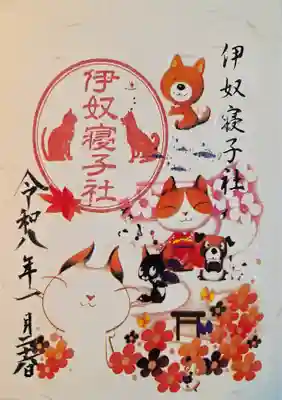 伊奴寝子社
伊奴寝子社
令和八年一月